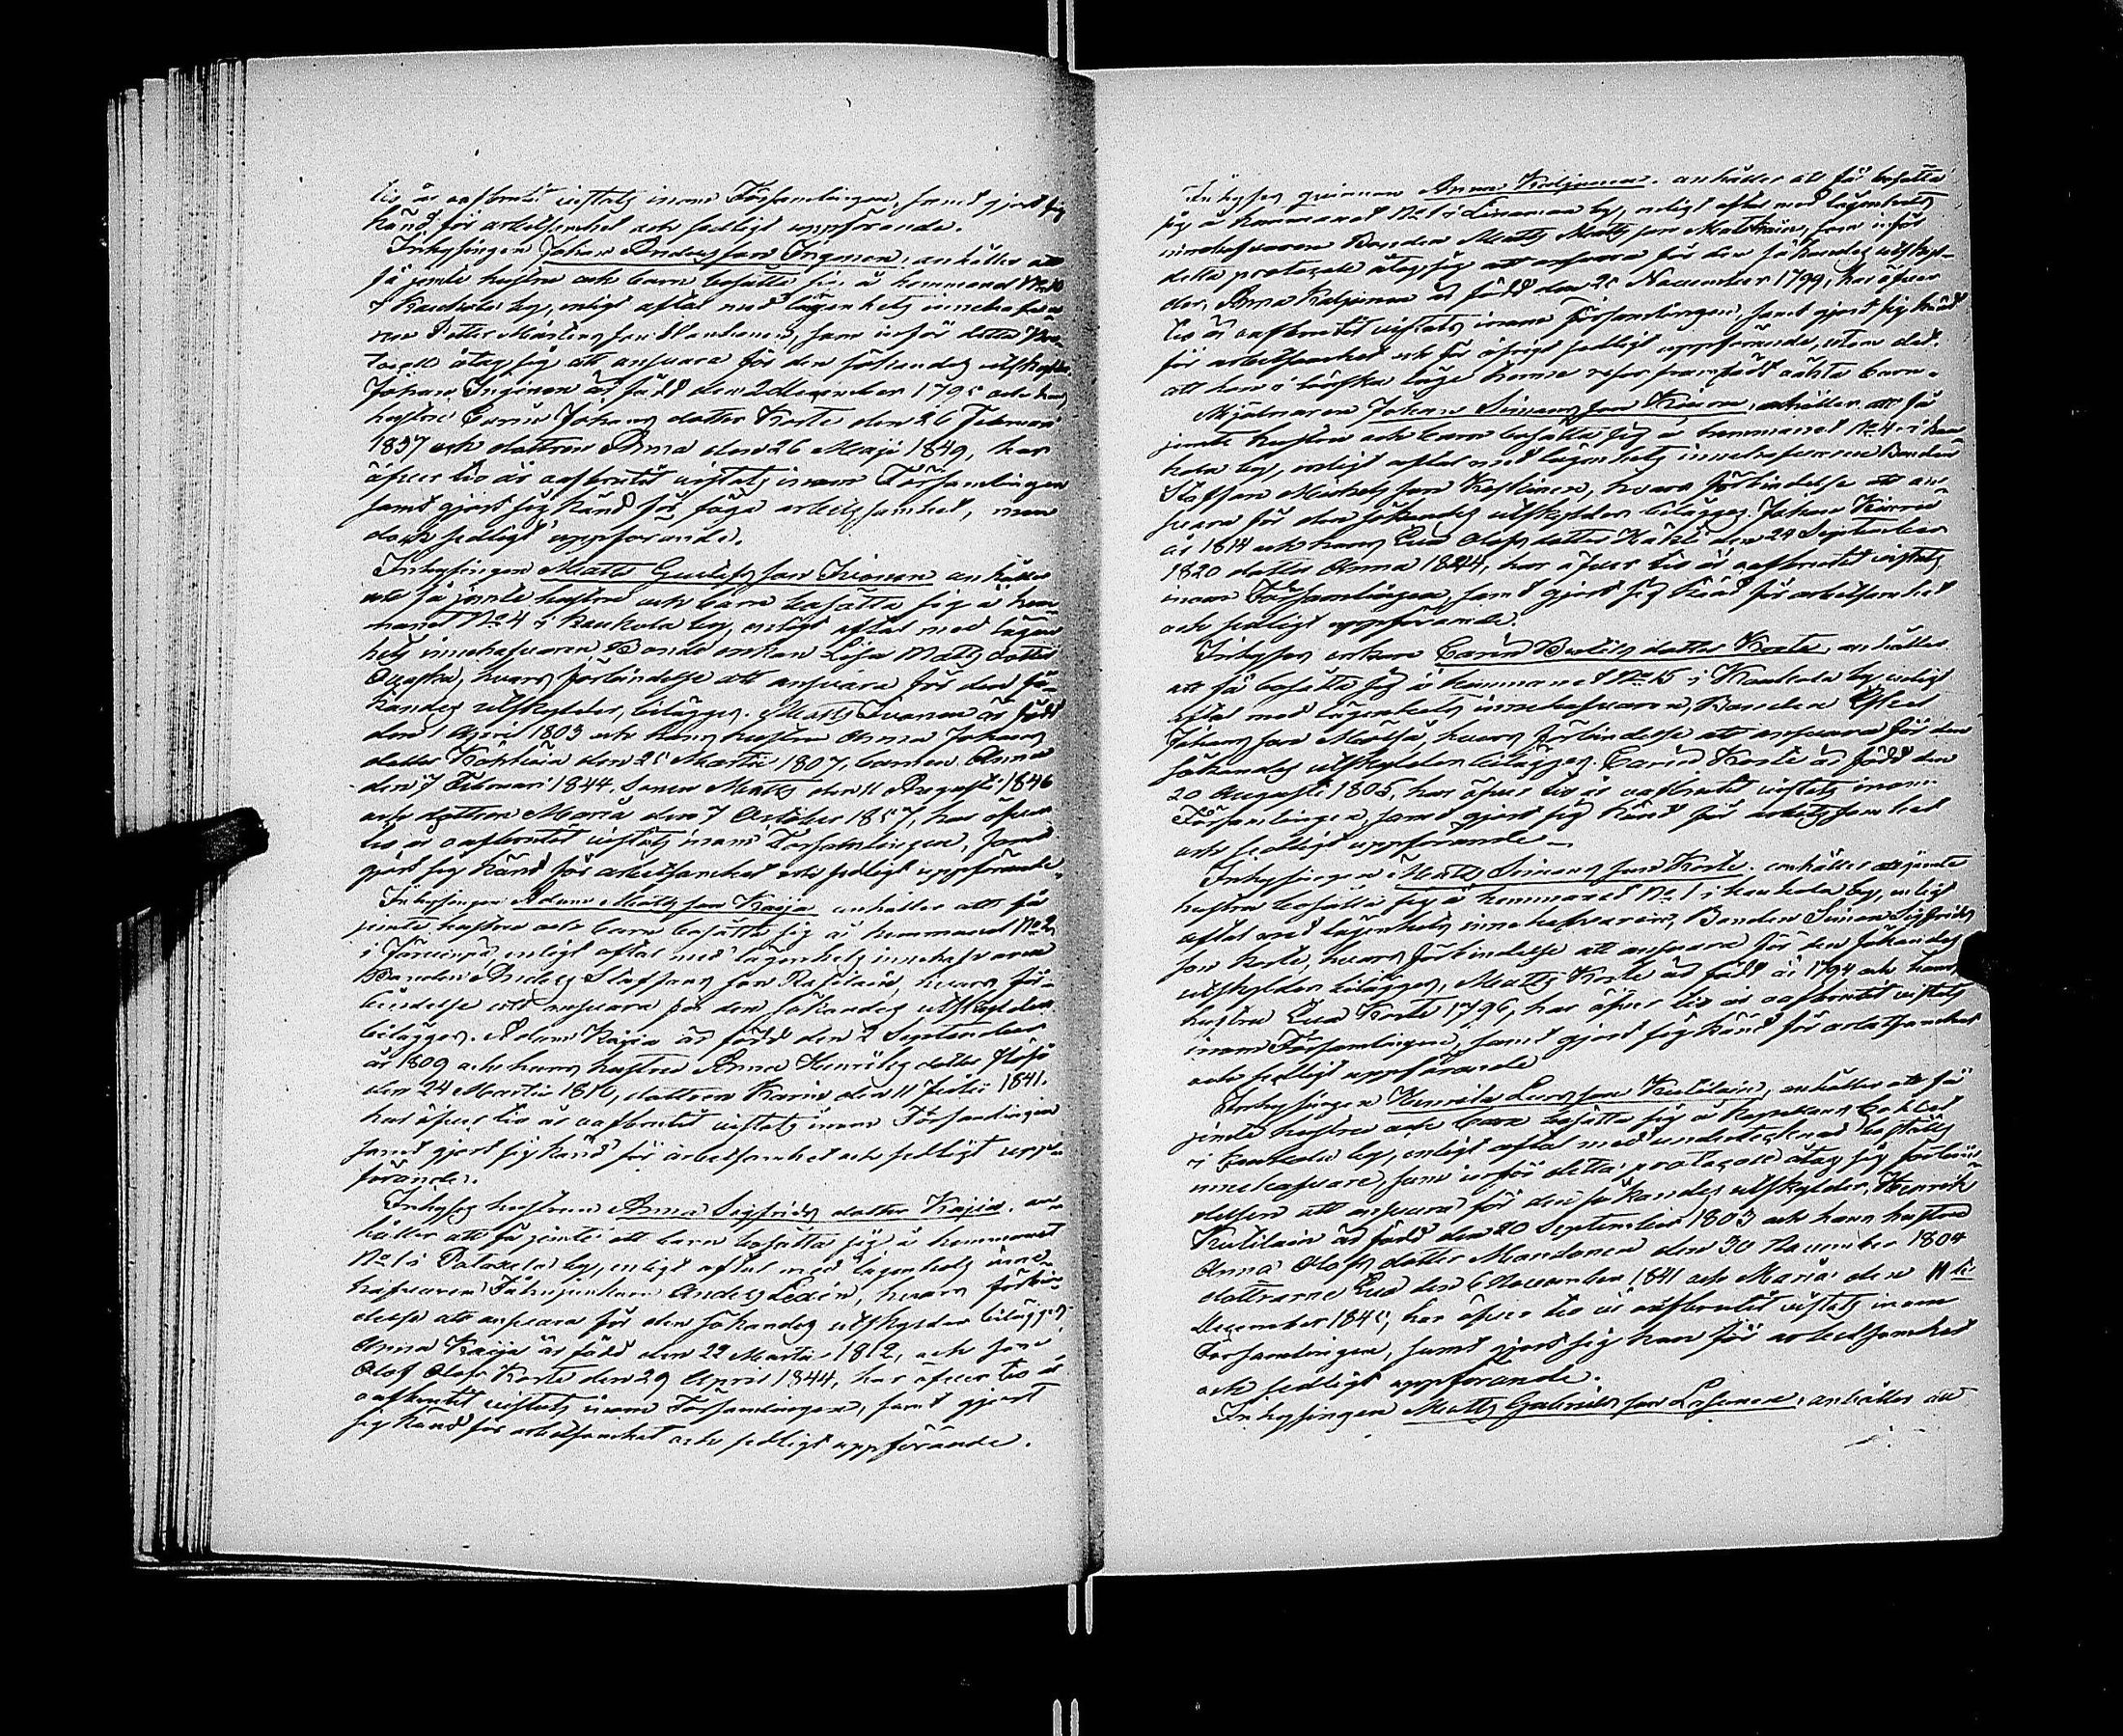 tio år oafbrutit vistats inom Församlingen, samt gjort sig
känd för arbetsamhet och sedligt uppförande.
Inhysingen Johan Anders son Inginen, anhåller att
få jemte hustru och barn bosätta sig å hemmanet No 10
i Kaukola by, enligt aftal med lägenhets innehafva-
ren Petter Mårtens son, som inför detta Pro-
tocoll åtog sig att ansvara för den sökandes utskylder,
Johan Inginen är född den 2 December 1795 och hans
hustru Carin Johans dotter Koste den 26 Februari
1837 och dottren Anna den 26 Maji 1849, har
öfver tio år oafbrutit vistats inom Församlingen
samt gjort sig känd för föga arbetssamhet, men
dock sedligt uppförande.
Inhysingen Matts Gustafs son Ivonen anhåller
att få jemte hustru och barn bosätta sig å hem-
manet No 4 i Kaukola by, enligt aftal med lägen-
hets innehafvaren Bonde enkan Lisa Matts dotter
hvars förbindelse att ansvara för den sö-
kandes utskylder, bilägges. Matts Ivonen är född
den 1 April 1803 och hans hustru Anna Johans
dotter den 25 Martii 1807, barnen Anna
den 7 Februari 1844, Sonen Matts den 11 Augusti 1846
och dottren Maria den 7 October 1857, har öfver
tio år oafbrutit vistats inom Församlingen, samt
gjort sig känd för arbetsamhet och sedligt uppförande.
Inhysingen Adam Matts son Kaija anhåller att få
jemte hustru och barn bosätta sig å hemmanet No 2
i Järvenpä, enligt aftal med lägenhets innehafvaren
Bonden Anders Staffans son Rapilain, hvars för-
bindelse att ansvara för den sökandes utskylder
bilägges. Adam Kaija är född den 2 September
år 1809 och hans hustru Anna Henriks dotter
den 24 Martii 1810, dottren Karin den 11 Julii 1841.
har öfver tio år oafbrutit vistats inom Församlingen
samt gjort sig känd för arbetsamhet och sedligt upp-
förande.
Inhyses hustrun Anna Sigfrids dotter Kaija, an-
håller att få jemte ett barn bosätta sig å hemmanet
No 1 i by, enligt aftal med lägenhets inne-
hafvaren Anders Ledén, hvars förbin-
delse att ansvara för den sökandes utskylder bilägges.
Anna Kaija är född den 22 Martii 1812, och son
Olof Olofs Koste den 29 April 1844, har öfver tio år
oafbrutit vistats inom Församlingen, samt gjort
sig känd för arbetsamhet och sedligt uppförande.
Inhyses qvinnan Anna Kaljunen, anhåller att få bosätta
sig å hemmanet No 1 i Liinamaa by, enligt aftal med lägenhets
innehafvaren Bonden Matts Matts son, som inför
detta protocoll åtog sig att ansvara för den sökandes utskyl-
der, Anna Kaljunen är född den 25 November 1799, har öfver
tio år oafbrutit vistats inom Församlingen, samt gjort sig känd
för arbetsamhet och för öfrigt sedligt uppförande, utom det
att hon i lönska läge henne resor framfödt oäkta barn.
Mjölnaren Johan Simons son Kiuru, anhåller att få
jemte hustru och barn bosätta sig å hemmanet No 4 i Kau-
kola by, enligt aftal med lägenhets innehafvaren Bonden
Staffan Michels son Kostinen, hvars förbindelse att an-
svara för den sökandes utskylder bilägges. Johan Kiuru
år 1814 och hans Eva Olofs dotter den 24 September
1820 dotter Anna 1844, har öfver tio år oafbrutit vistats
inom Församlingen, samt gjort sig känd för arbetsamhet
och sedligt uppförande.
Inhyses enkan Carin Bertils dotter Koste, anhåller
att få bosätta sig å hemmanet No 15 i Kaukola by, enligt
aftal med lägenhets innehafvaren, Bonden
Johans son, hvars förbindelse att ansvara för den
sökandes utskylder bilägges. Carin Koste är född den
20 Augusti 1805, har öfver tio år oafbrutit vistats inom
Församlingen, samt gjort sig känd för arbetssamhet
och sedligt uppförande.
Inhysingen Matts Simons son Koste, anhåller att jemte
hustru bosätta sig å hemmanet No 1 i Kaukola by, enligt
aftal med lägenhets innehafvaren, Bonden Simon Sigfrids
son Koste, hvars förbindelse att ansvara för den sökandes
utskylder bilägges, Matts Koste är född år 1794 och hans
hustru Eva Koste 1796, har öfver tio år oafbrutit vistats
inom Församlingen, samt gjort sig känd för arbetsamhet
och sedligt uppförande
Inhysingen Henrik Lars son Kutilain, anhåller att få
jemte hustru och barn bosätta sig å Kapellans Bohlet
i Kaukola by, enligt aftal med undertecknad boställs
innehafvare, som inför detta protocoll åtog sig förbin-
delsen att ansvara för den sökandes utskylder, Henrik
Kutilain är född den 20 September 1803 och hans hustru
Anna Olofs dotter Mandonen den 30 November 1804
döttrarne Eva den 6 November 1841 och Maria den 11 te
December 1845, har öfver tio år oafbrutit vistats inom
Församlingen, samt gjort sig känd för arbetsamhet
och sedligt uppförande.
Inhysingen Matts Gabriels son, anhåller att